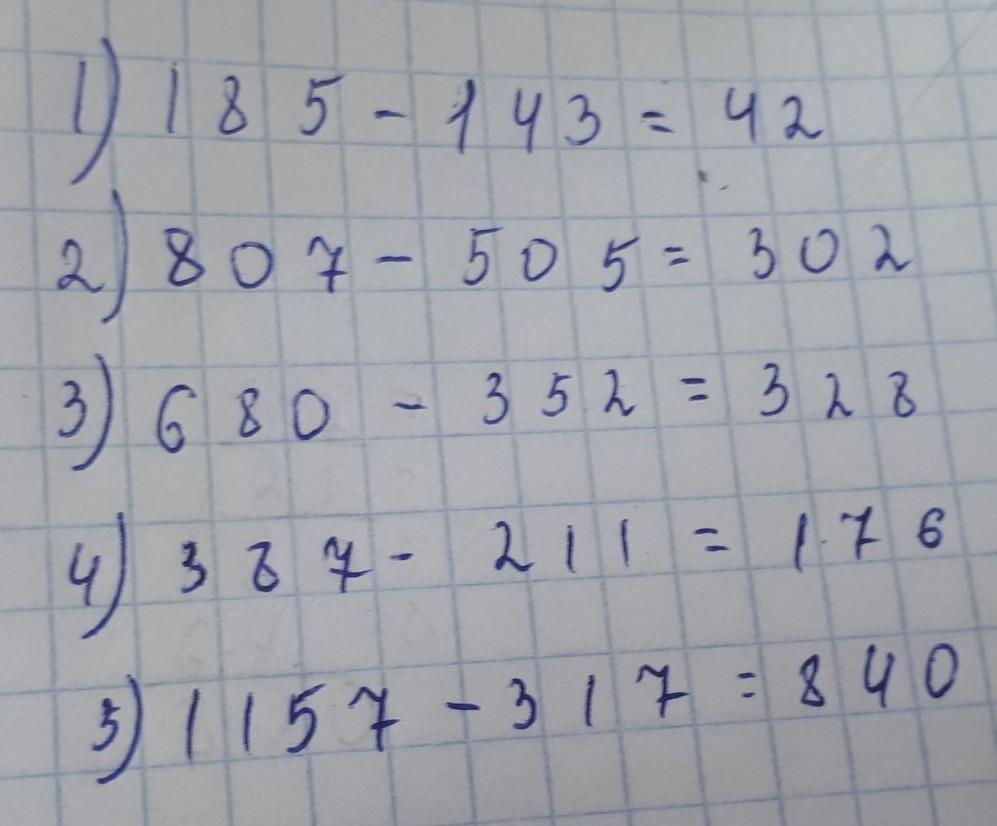 1) 185 - 143 = 42
2) 807 - 505 = 302
3) 680 - 352 = 328
4) 387 - 211 = 176
5) 1157 - 317 = 840